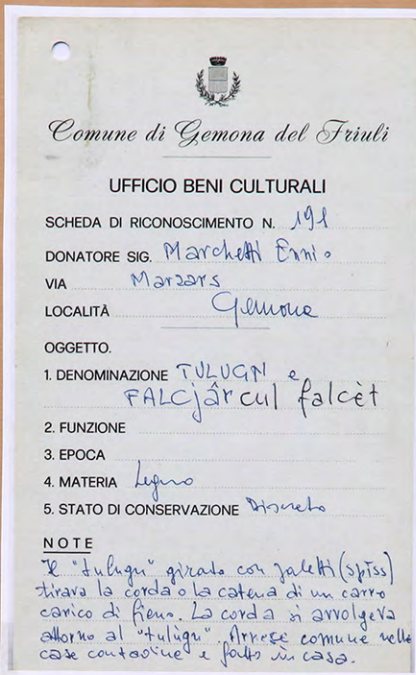 Comune di Gemona del Friuli
UFFICIO BENI CULTURALI
SCHEDA DI RICONOSCIMENTO N. 191
DONATORE SIG. Marchetti Ennio
VIA Marzars
LOCALITÀ Gemona
OGGETTO.
1. DENOMINAZIONE TULUGN e
FALCjâr cul falcèt
2. FUNZIONE
3. EPOCA
4. MATERIA Legno
5. STATO DI CONSERVAZIONE Discreto
NOTE
Il "tulugn" girato con paletti (spiss)
tirava la corda o la catena di un carro
carico di fieno. La corda si avvolgeva
attorno al "tulùgn". Arnese comune nelle
case contadine e fatto in casa.